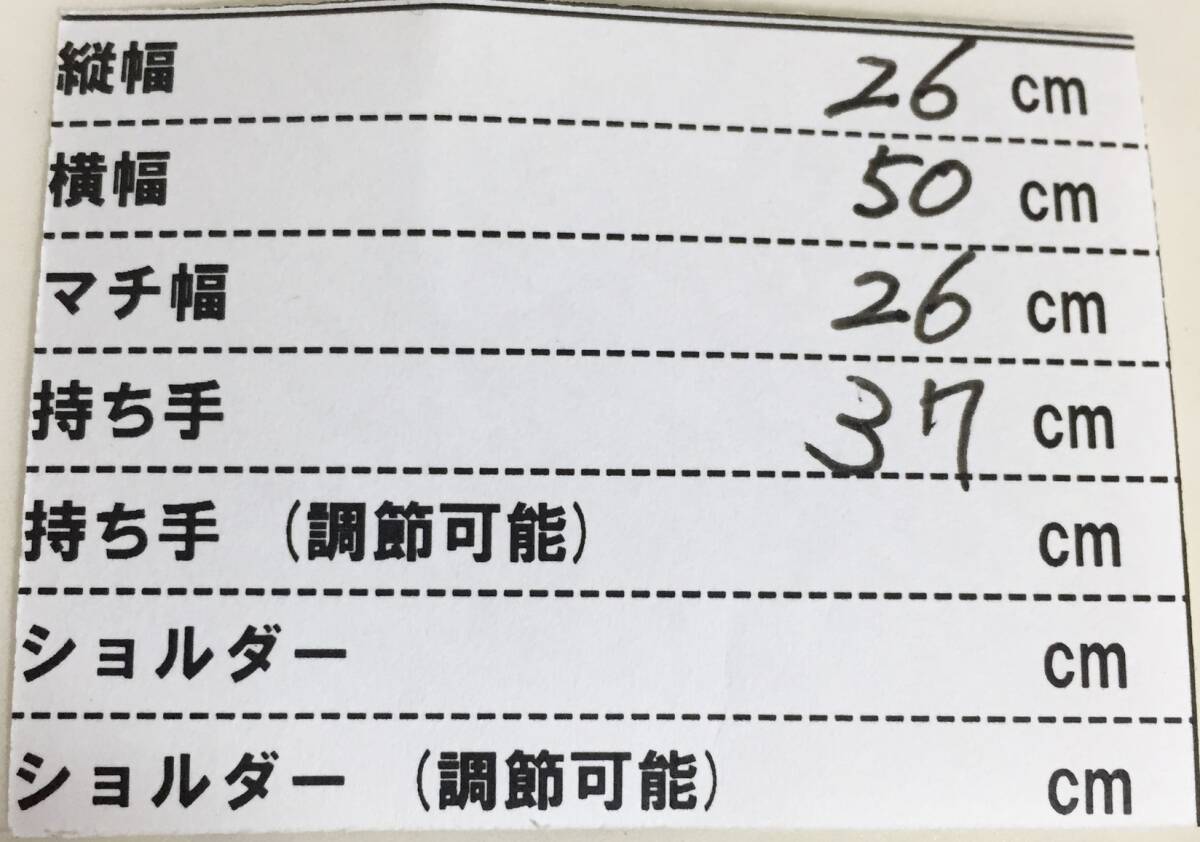 縦幅 26 cm
横幅 50 cm
マチ幅 26 cm
持ち手 37 cm
持ち手 (調節可能) cm
ショルダー cm
ショルダー (調節可能) cm